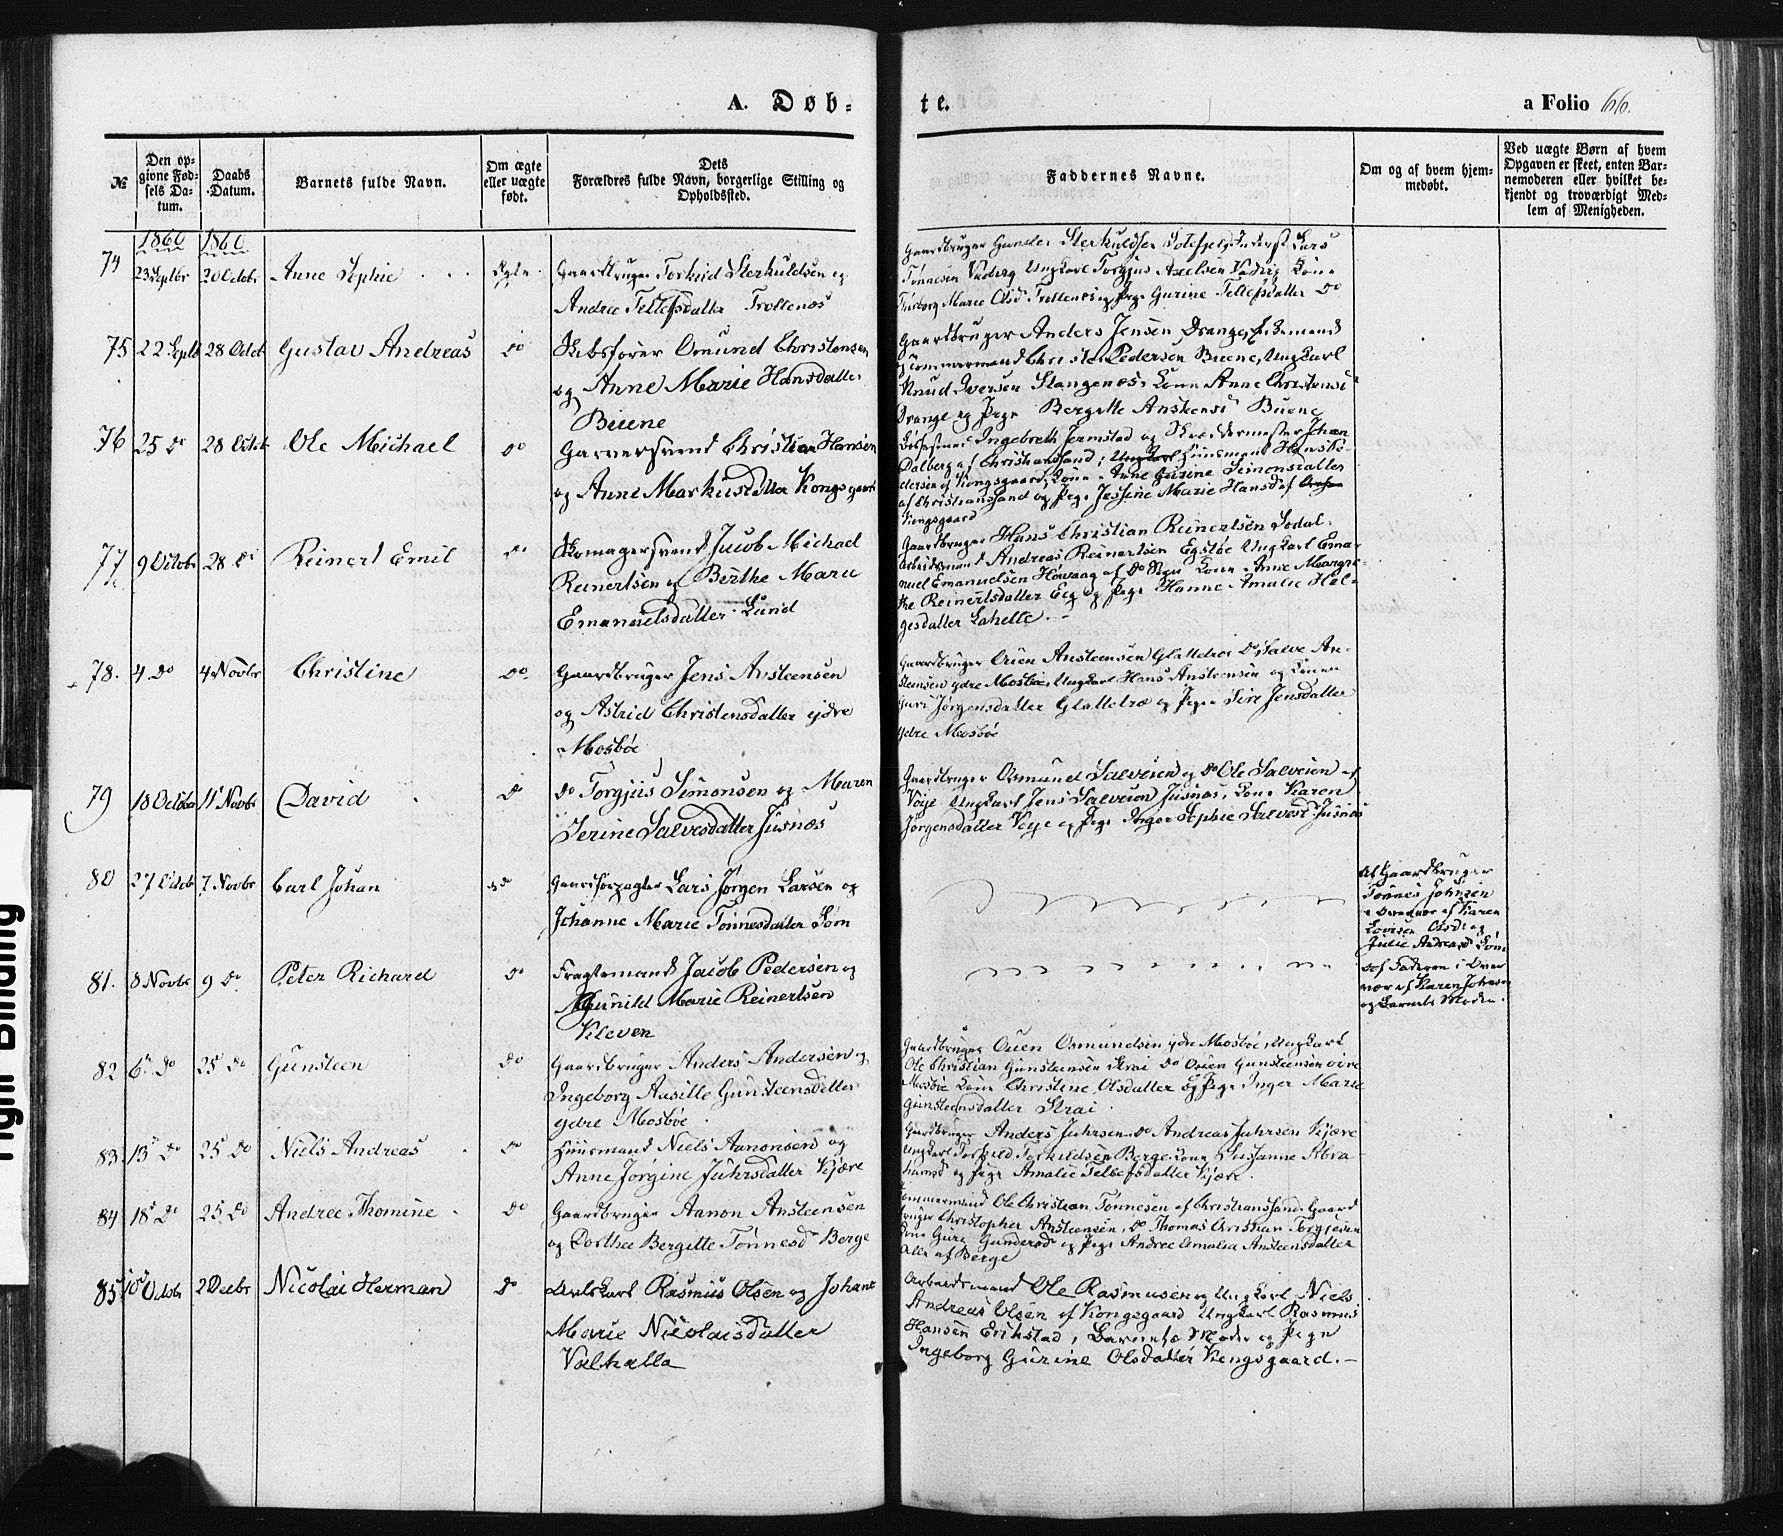 A. Døb-
te.
a Folio 66.
№
Den op-
givne Fød-
sels Da-
tum.
Daabs
Datum.
Barnets fulde Navn.
Om ægte
eller uægte
født.
Dets
Forældres fulde Navn, borgerlige Stilling og
Opholdssted.
Faddernes Navne.
Om og af hvem hjem-
medøbt.
Ved uægte Børn af hvem
Opgaven er skeet, enten Bar-
nemoderen eller hvilket be-
kjendt og troværdigt Med-
lem af Menigheden.
1860 1860
74 23 Septbr 20 Octobr Anne Sophie Ægte Gaardbruger Torkild Sterkuldsen og
Andrea Tellefsdatter Trollenæs
Gaardbruger Gunder Sterkuldsen Lars
Tønnesen Ungkarl Torgjus Axelsen Kone
Marie Olsd Trollenæs og Pige Gurine Tellefsdatter Do
75 22 Septb 28 Octob Gustav Andreas Do Skibsfører Omund Christensen
og Anne Marie Hansdatter
Buene
Gaardbruger Anders Jensen Drange,
Tømmermand Christen Pedersen Buene, Ungkarl
Knud Iversen Stangenæs, Kone Anne Christensd
Drange og Pige Bergitte Anstensd Buene
76 25 Do 28 Octob Ole Michael Do Garversvend Christian Hansen
og Anne Markusdatter Kongsgaard
Ingebreth Jermstad og Skræddermester Johan
Dalberg af Christianssand, Huusmand Hans Pe-
dersen af Kongsgaard, Kone Anne Gurine Simonsdatter
af Christianssand og Pige Jessine Marie Hansd af
Kongsgaard
77 9 Octobr 28 Do Reinert Emil Do Skomagersvend Jacob Michael
Reinertsen og Birthe Marie
Emanuelsdatter Lund
Gaardbruger Hans Christian Reinertsen Sødal.
Arbeidsmand Andreas Reinertsen Egstøe Ungkarl Ema-
nuel Emanuelsen Høvaag af Do Kone Anne Margre-
the Reinertsdatter Eeg og Pige Hanne Amalie Hel-
gesdatter Lahelle.
78. 4 Do 4 Novbr Christine Do Gaardbruger Jens Ansteensen
og Astrid Christensdatter ydre
Mosbøe
Gaardbruger Ouen Ansteensen Glattetræ Do Salve An-
steensen ydre Mosbøe, Ungkarl Hans Ansteensen og Kone
Guri Jørgensdatter Glattetræ og Pige Siri Jensdatter
ydre Mosbøe
79 18 Octobr 11 Novbr David Do Do Torgjus Simonsen og Maren
Serine Salvesdatter Jusnæs
Gaardbruger Osmund Salvesen og Do Ole Salvesen af
Voje Ungkarl Jens Salvesen Jusnæs, Kone Karen
Jørgensdatter Voje og Pige Inger Sophie Salvesd Jusnæs
80 27 Octob 7 Novbr Carl Johan Do Gaardforpagter Lars Jørgen Larsen og
Johanne Marie Tønnesdatter Søm
af Gaardbruger
Tønnes Johnsen
i Overvær af Karen
Lovise Olsd og
Julie Andreasd Søm
81. 8 Novbr 9 Do Peter Richard Do Fragtemand Jacob Pedersen og
Gunild Marie Reinertsen
Kleven
af Faderen i Over-
vær af Karen Johnsen
og Barnets Moder.
82 6 Do 25 Do Gunsteen Do Gaardbruger Anders Andersen og
Ingeborg Aasille Gunsteensdatter
ydre Mosbøe
Gaardbruger Ouen Osmundsen ydre Mosbøe, Ungkarl
Ole Christian Gunsteensen Strai Do Ouen Gunsteensen øvre
Mosbøe Kone Christine Olsdatter og Pige Inger Marie
Gunsteensdatter Strai.
83 13 Do 25 Do Niels Andreas Do Huusmand Niels Aanonsen og
Anne Jorgine Juhrsdatter Kjære
Gaardbruger Anders Juhrsen Do Andreas Juhrsen Kjære
Ungkarl Torkild Torkildsen Berge, Kone Susanne Abra-
hamsd og Pige Amalie Tellefsdatter Kjære.
84 18 Do 25 Do Andree Thomine Do Gaardbruger Aanon Ansteensen
og Dorthee Bergitte Tønnesd Berge
Tømmermand Ole Christian Tønnesen af Christianssand Gaard-
bruger Christopher Ansteensen, Do Thomas Christian Torgjusen
Kone Guri Gundersd og Pige Andree Amalia Ansteensdatter
Alle af Berge
85 10 Octobr 2 Decbr Nicolai Herman Do Rasmus Olsen og Johanne
Marie Nicolaisdatter
Valhalla
Arbeidsmand Ole Rasmusen og Ungkarl Niels
Andreas Olsen af Kongsgaard Ungkarl Rasmus
Hansen Erikstad, Barnets Moder og Pige
Ingeborg Gurine Olsdatter Kongsgaard.
Tight Binding